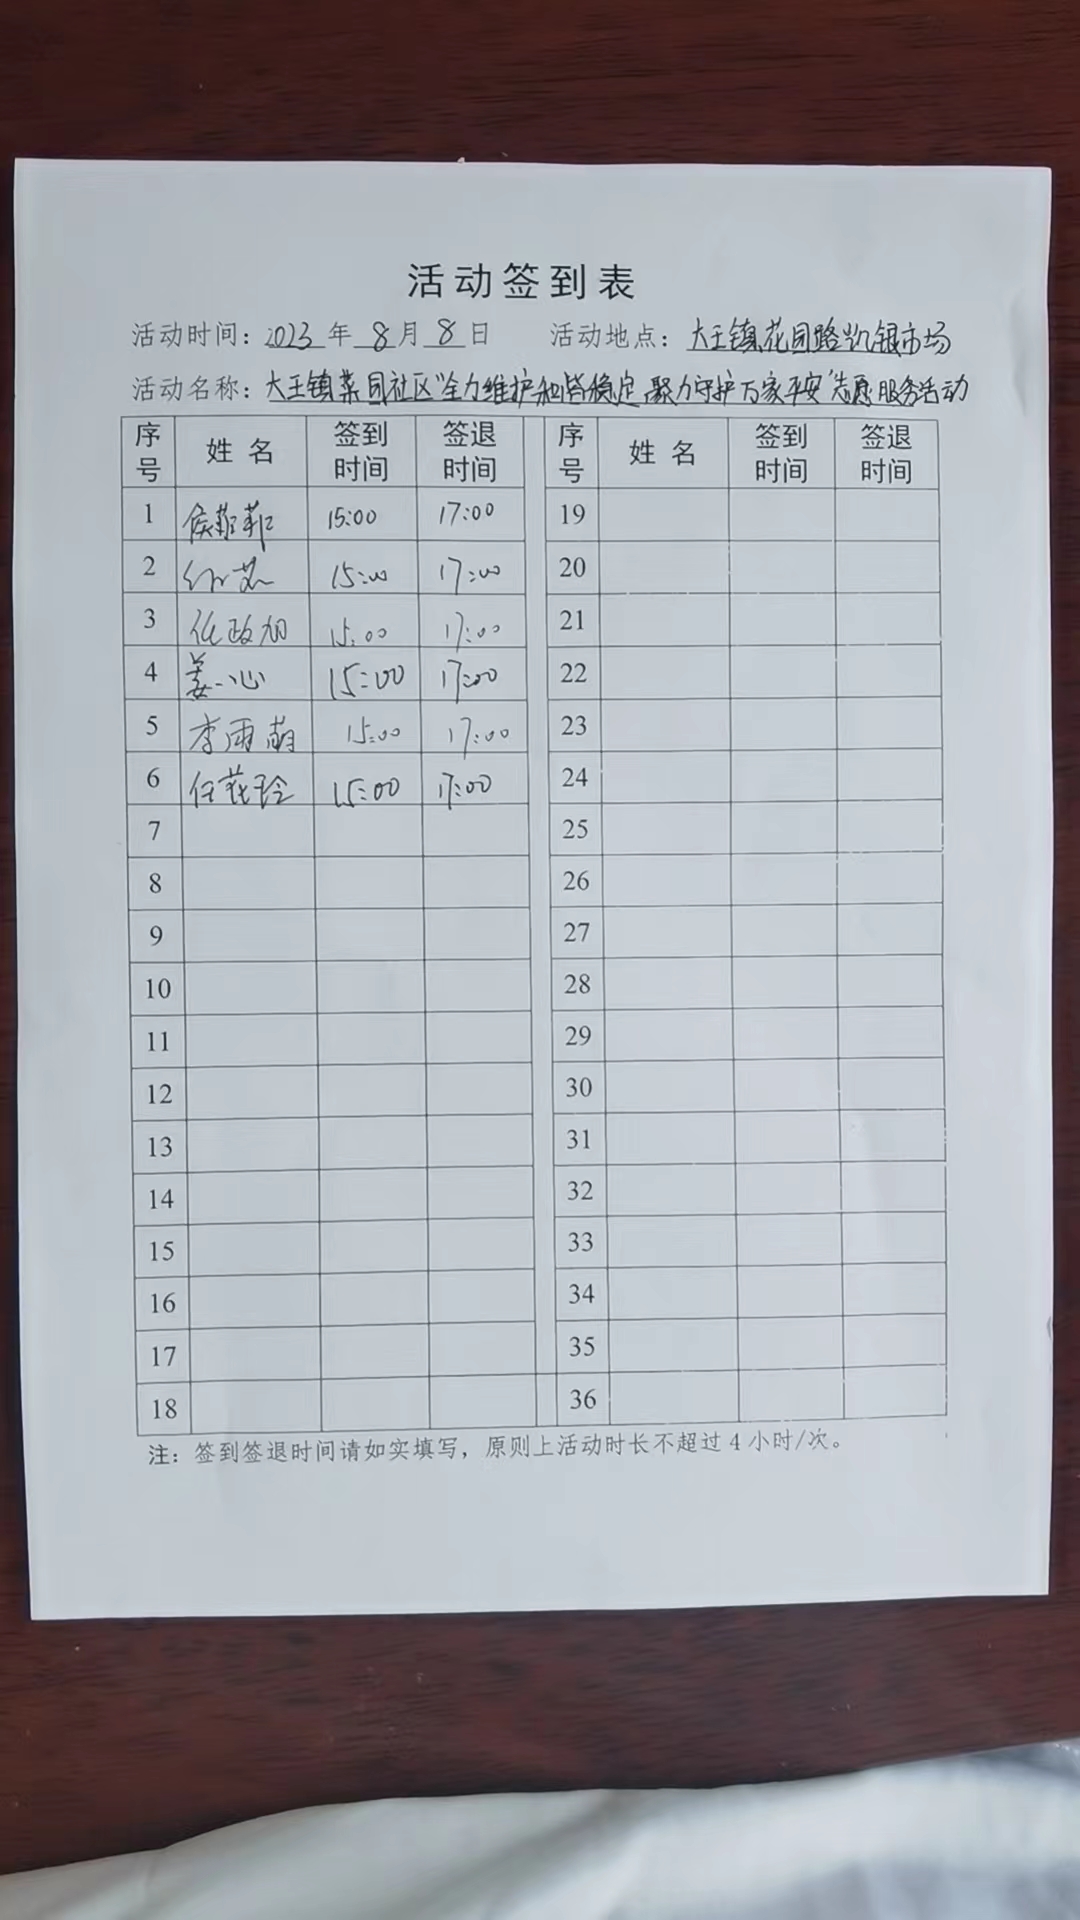 活动签到表
活动时间：2023年8月8日 活动地点：大王镇花园路凯银市场
活动名称：大王镇菜园社区“全力维护和谐稳定，聚力守护万家平安”志愿服务活动
序号 姓名 签到时间 签退时间 序号 姓名 签到时间 签退时间
1 侯菲菲 15:00 17:00 19
2 15:00 17:00 20
3 任政旭 15:00 17:00 21
4 姜一心 15:00 17:00 22
5 李雨萌 15:00 17:00 23
6 任花玲 15:00 17:00 24
7 25
8 26
9 27
10 28
11 29
12 30
13 31
14 32
15 33
16 34
17 35
18 36
注：签到签退时间请如实填写，原则上活动时长不超过4小时/次。